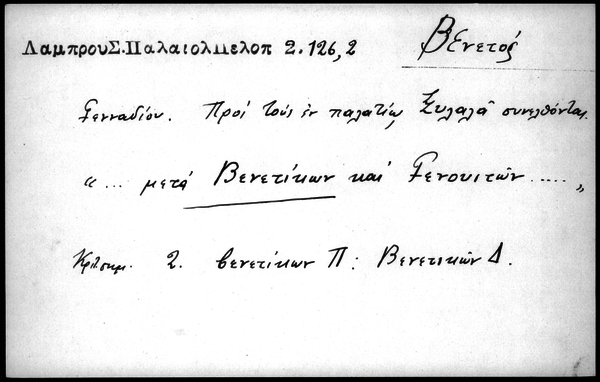 ΛαμπρουΣ.ΠαλαιολΠελοπ 2.126,2 Βενετός
Γενναδίου. Πρός τούς ἐν παλατίῳ Ξυλαλᾶ συνελθόντας.
“ ... μετά Βενετίκων καί Γενουιτῶν ..... „
Κριτ.σημ. 2. βενετίκων Π: Βενετικῶν Δ.